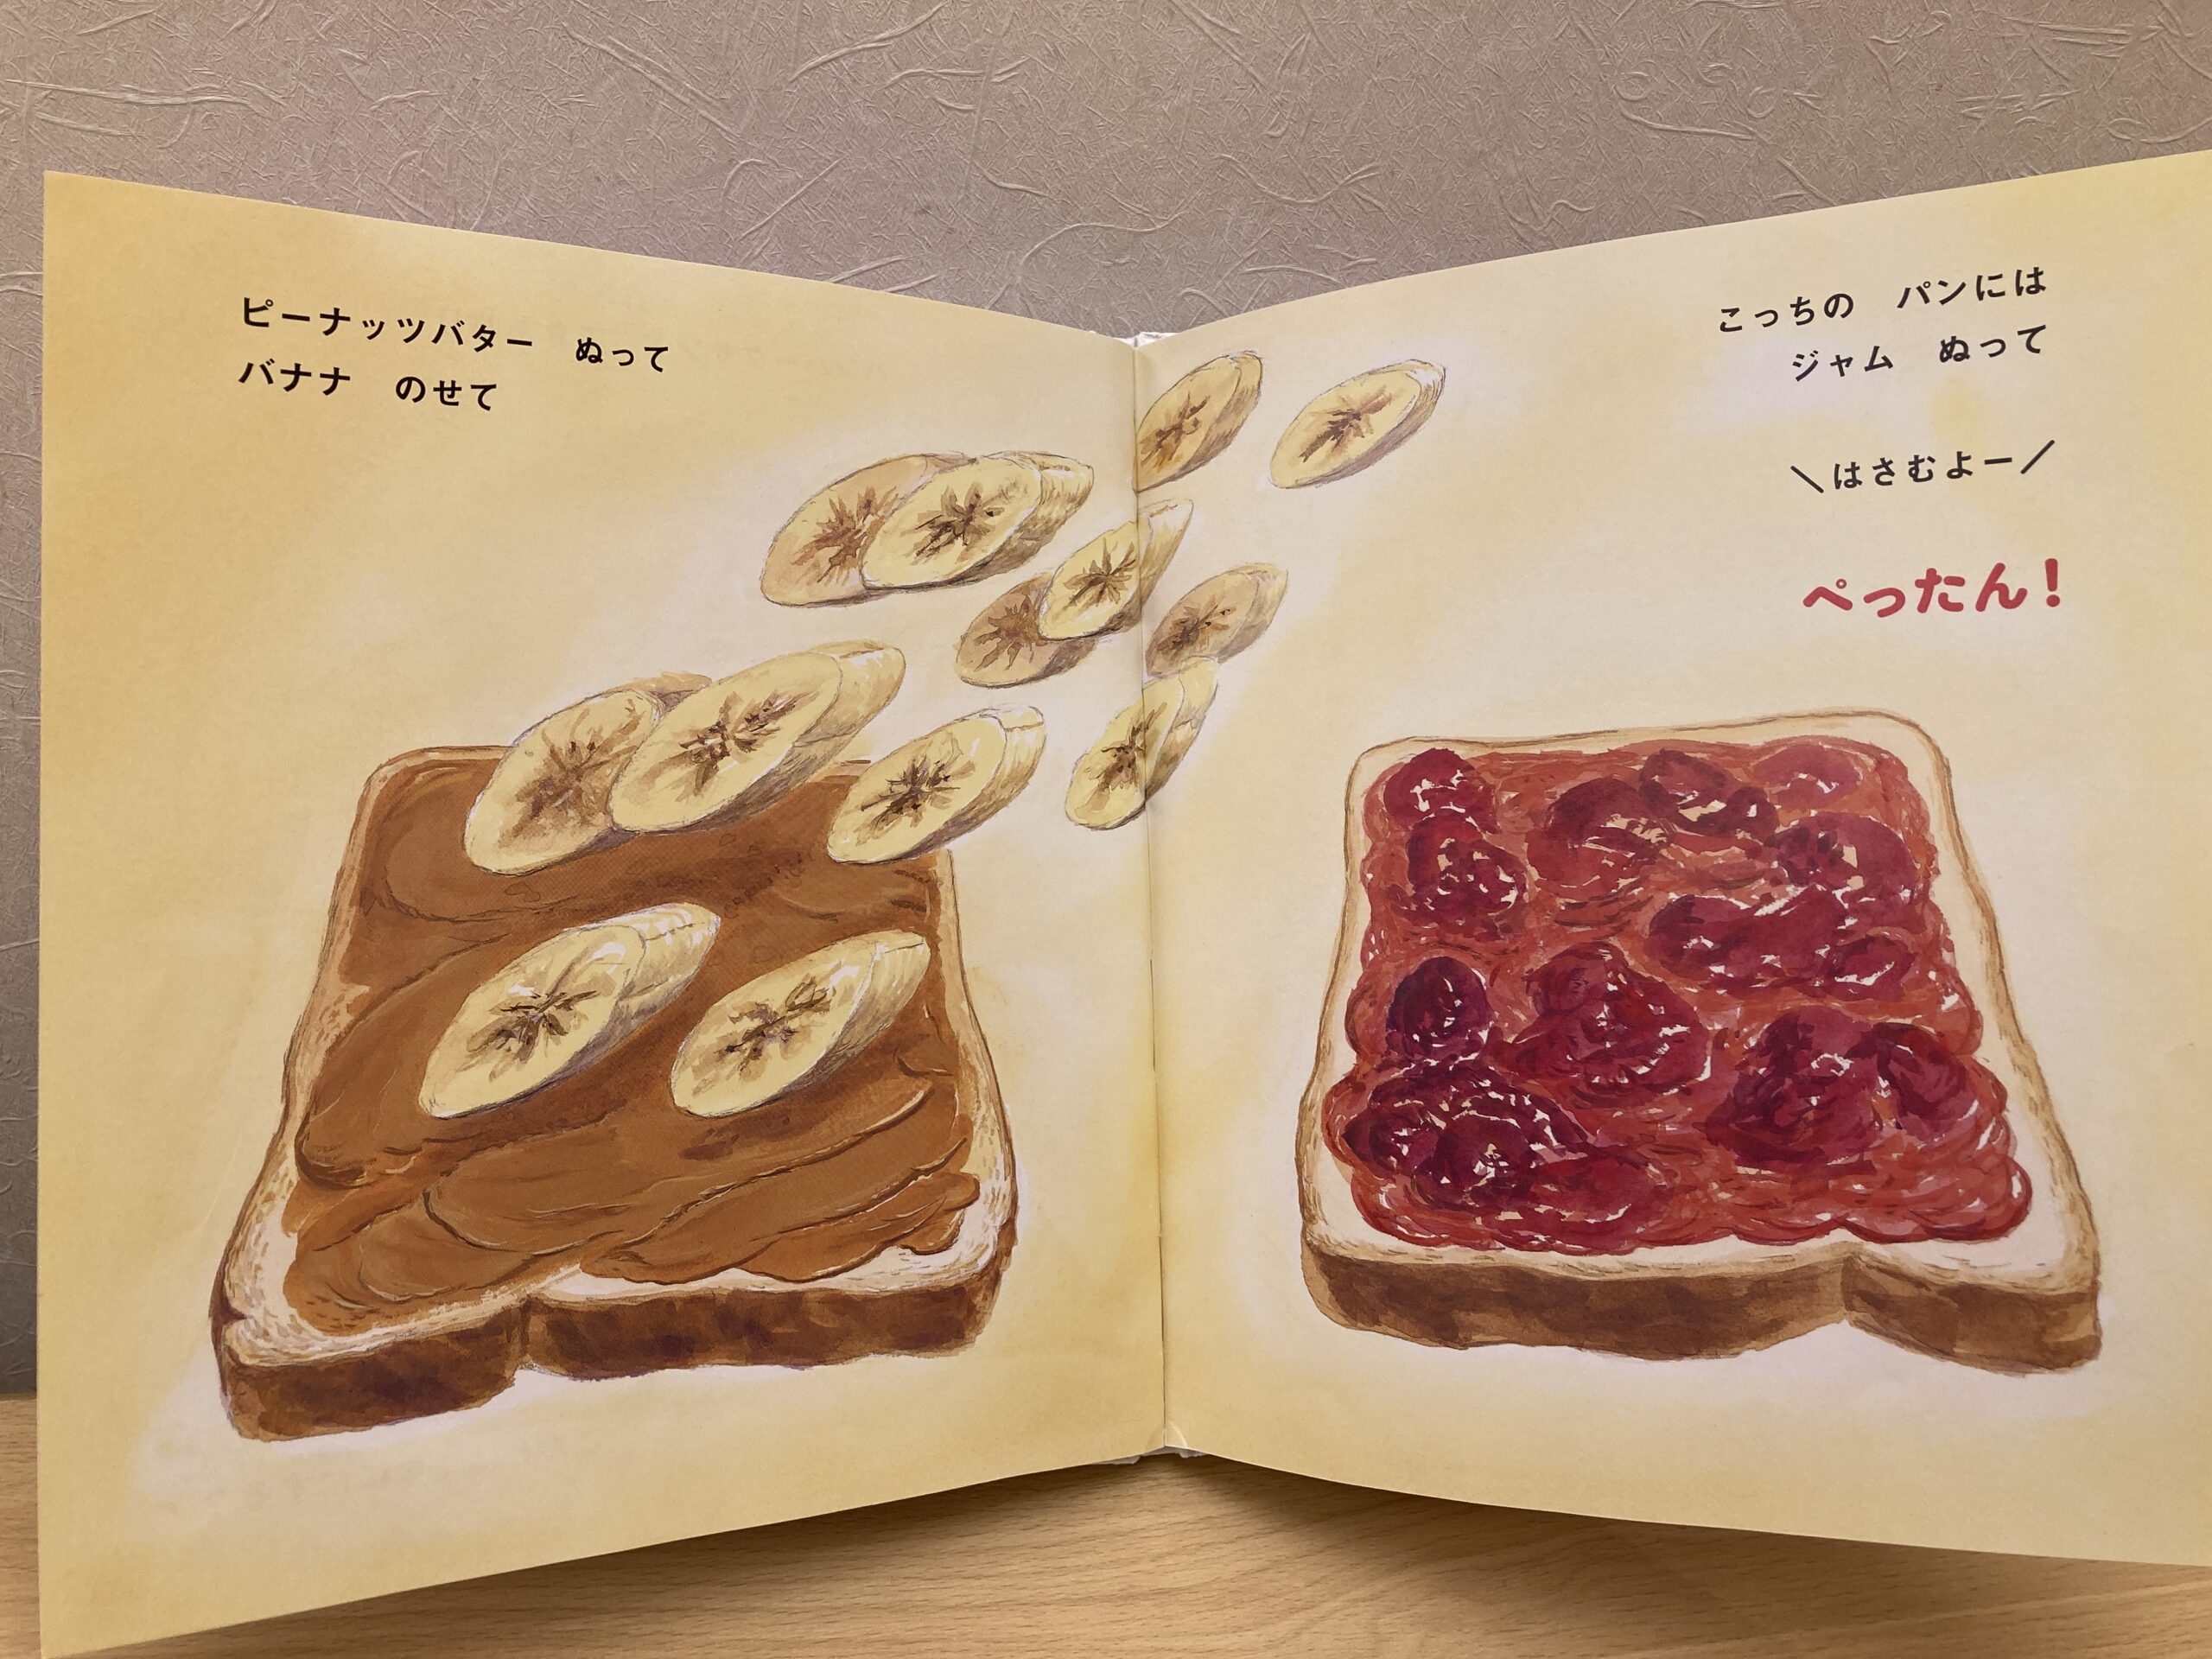 ピーナッツバター　ぬって
バナナ　のせて
こっちの　パンには
ジャム　ぬって
＼はさむよー／
ぺったん！